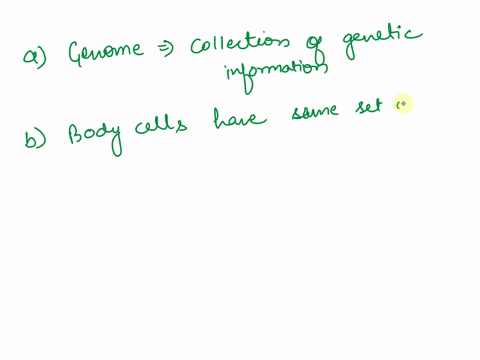 a) Genome ⇒ collection of genetic
information
b) Body cells have same set